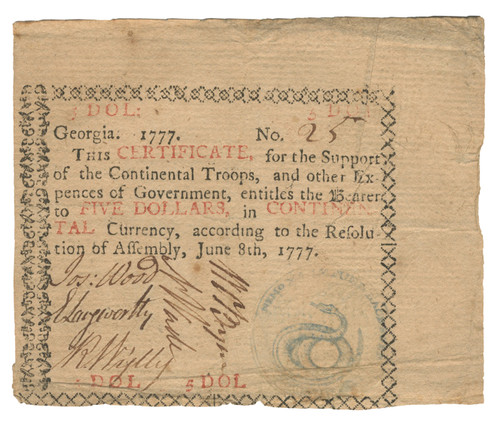 5 DOL:
Georgia. 1777. No. 25
THIS CERTIFICATE, for the Support
of the Continental Troops, and other Ex-
pences of Government, entitles the Bearer
to FIVE DOLLARS, in CONTINEN-
TAL Currency, according to the Resolu-
tion of Assembly, June 8th, 1777.
Jos: Wood
E Langworthy
R Wylly
DOL 5 DOL